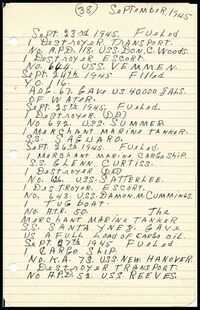 (38) September 1945
Sept. 23rd 1945. Fueled
1 Destroyer Transport.
No. A.P.D. 118. U.S.S. Don. C. Woods.
1 Destroyer Escort.
No. 644. U.S.S. Vemmen.
Sept. 24th 1945 Filled
Y.O. 14.
AOG. 67. Gave us 40000 gals.
of Water.
Sept. 25th 1945. Fueled
1 Destroyer. (DD)
No. 692. U.S.S. Summer.
1 Merchant Marine Tanker.
S.S. Saguaro.
Sept. 26th 1945. Fueled
1 Merchant Marine Cargo Ship.
S.S. Glenn Curtiss.
1 Destroyer (DD)
No. U.S.S. Satterlee.
1 Destroyer Escort.
No. 643. U.S.S. Damon. M. Cummings.
1 Tug boat.
No. ATR. 50. The
Merchant Marine Tanker
S.S. Santa Ynez. Gave
us a full load of cargo oil.
Sept 27th 1945 Fueled
1 Cargo Ship.
No. K.A. 73. U.S.S. New Hanover.
1 Destroyer Transport.
No. A.P.D. 52. U.S.S. Reeves.